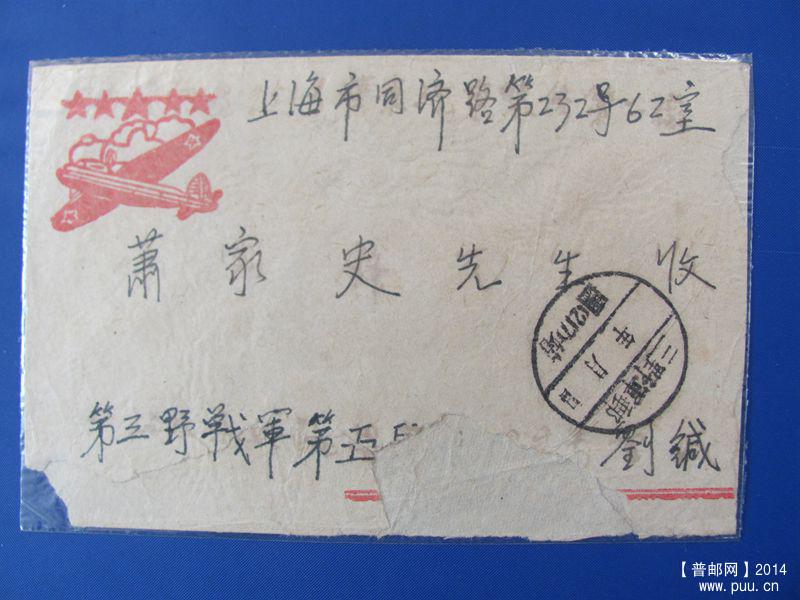 上海市同济路第232号62室
萧家史先生 收
三野軍郵
年 月 日
第三野戰軍第五
劉缄
【普邮网】2014
www.puu.cn